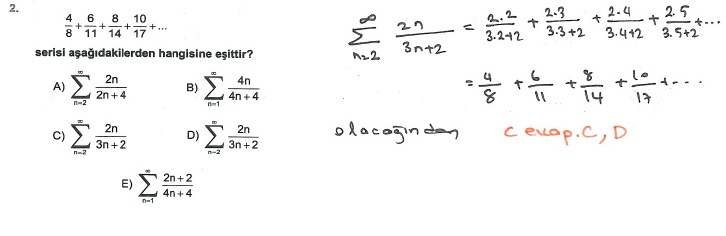 2.
4/8 + 6/11 + 8/14 + 10/17 + ...
serisi aşağıdakilerden hangisine eşittir?
A) ∑_{n=2}^{∞} 2n/(2n+4) B) ∑_{n=1}^{∞} 4n/(4n+4)
C) ∑_{n=2}^{∞} 2n/(3n+2) D) ∑_{n=2}^{∞} 2n/(3n+2)
E) ∑_{n=1}^{∞} (2n+2)/(4n+4)
∑_{n=2}^{∞} 2n/(3n+2) = 2.2/(3.2+2) + 2.3/(3.3+2) + 2.4/(3.4+2) + 2.5/(3.5+2) + ...
= 4/8 + 6/11 + 8/14 + 10/17 + ...
olacağından cevap. C, D